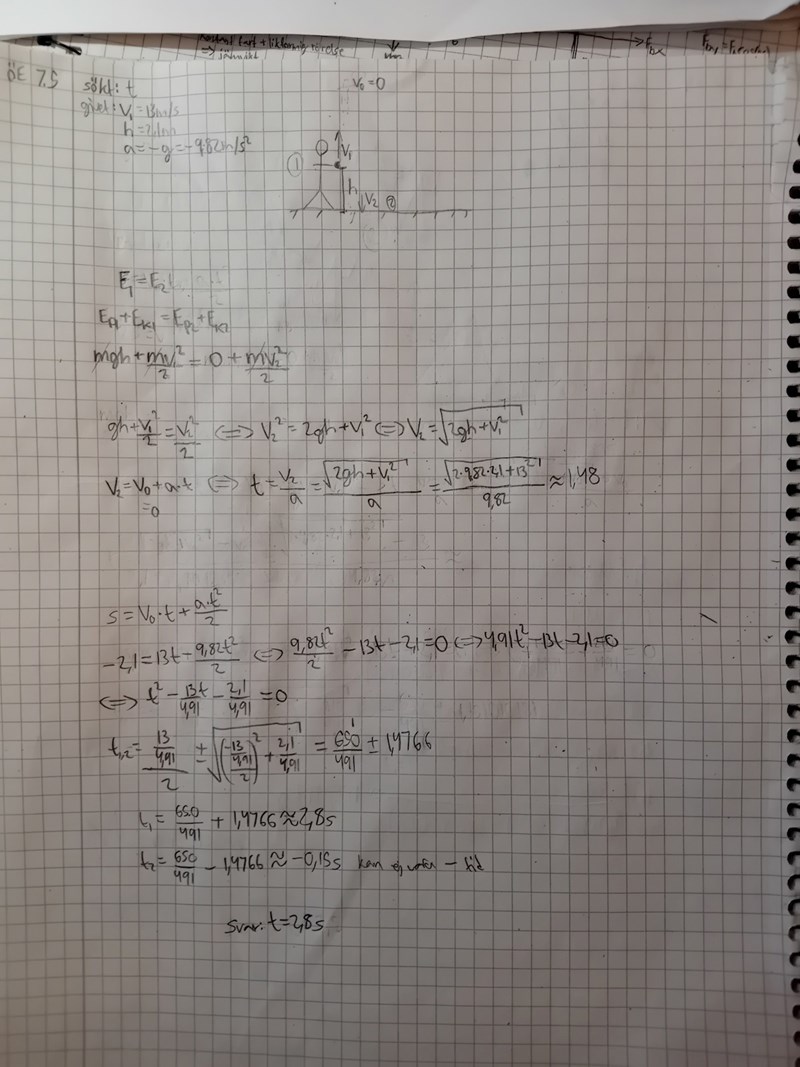 konstant fart + likformig rörelse
=> jämvikt
F_bx
ÖE 7.5
sökt: t
givet: V₁ = 13m/s
h = 2,1m
a = -g = -9,82m/s²
V₀ = 0
① V₁
h V₂ ②
E₁ = E₂
E_p1 + E_k1 = E_p2 + E_k2
mgh + mv₁²/2 = 0 + mv₂²/2
gh + V₁²/2 = V₂²/2 <=> V₂² = 2gh + V₁² <=> V₂ = √(2gh + V₁²)
V₂ = V₀ + a·t <=> t = V₂/a = √(2gh + V₁²)/a = √(2·9,82·2,1 + 13²)/9,82 ≈ 1,48
=0
s = V₀·t + a·t²/2
-2,1 = 13t - 9,82t²/2 <=> 9,82t²/2 - 13t - 2,1 = 0 <=> 4,91t² - 13t - 2,1 = 0
<=> t² - 13t/4,91 - 2,1/4,91 = 0
t₁,₂ = (13/4,91)/2 ± √(((-13/4,91)/2)² + 2,1/4,91) = 650/491 ± 1,4766
t₁ = 650/491 + 1,4766 ≈ 2,8s
t₂ = 650/491 - 1,4766 ≈ -0,15s kan ej vara - tid
Svar: t = 2,8s